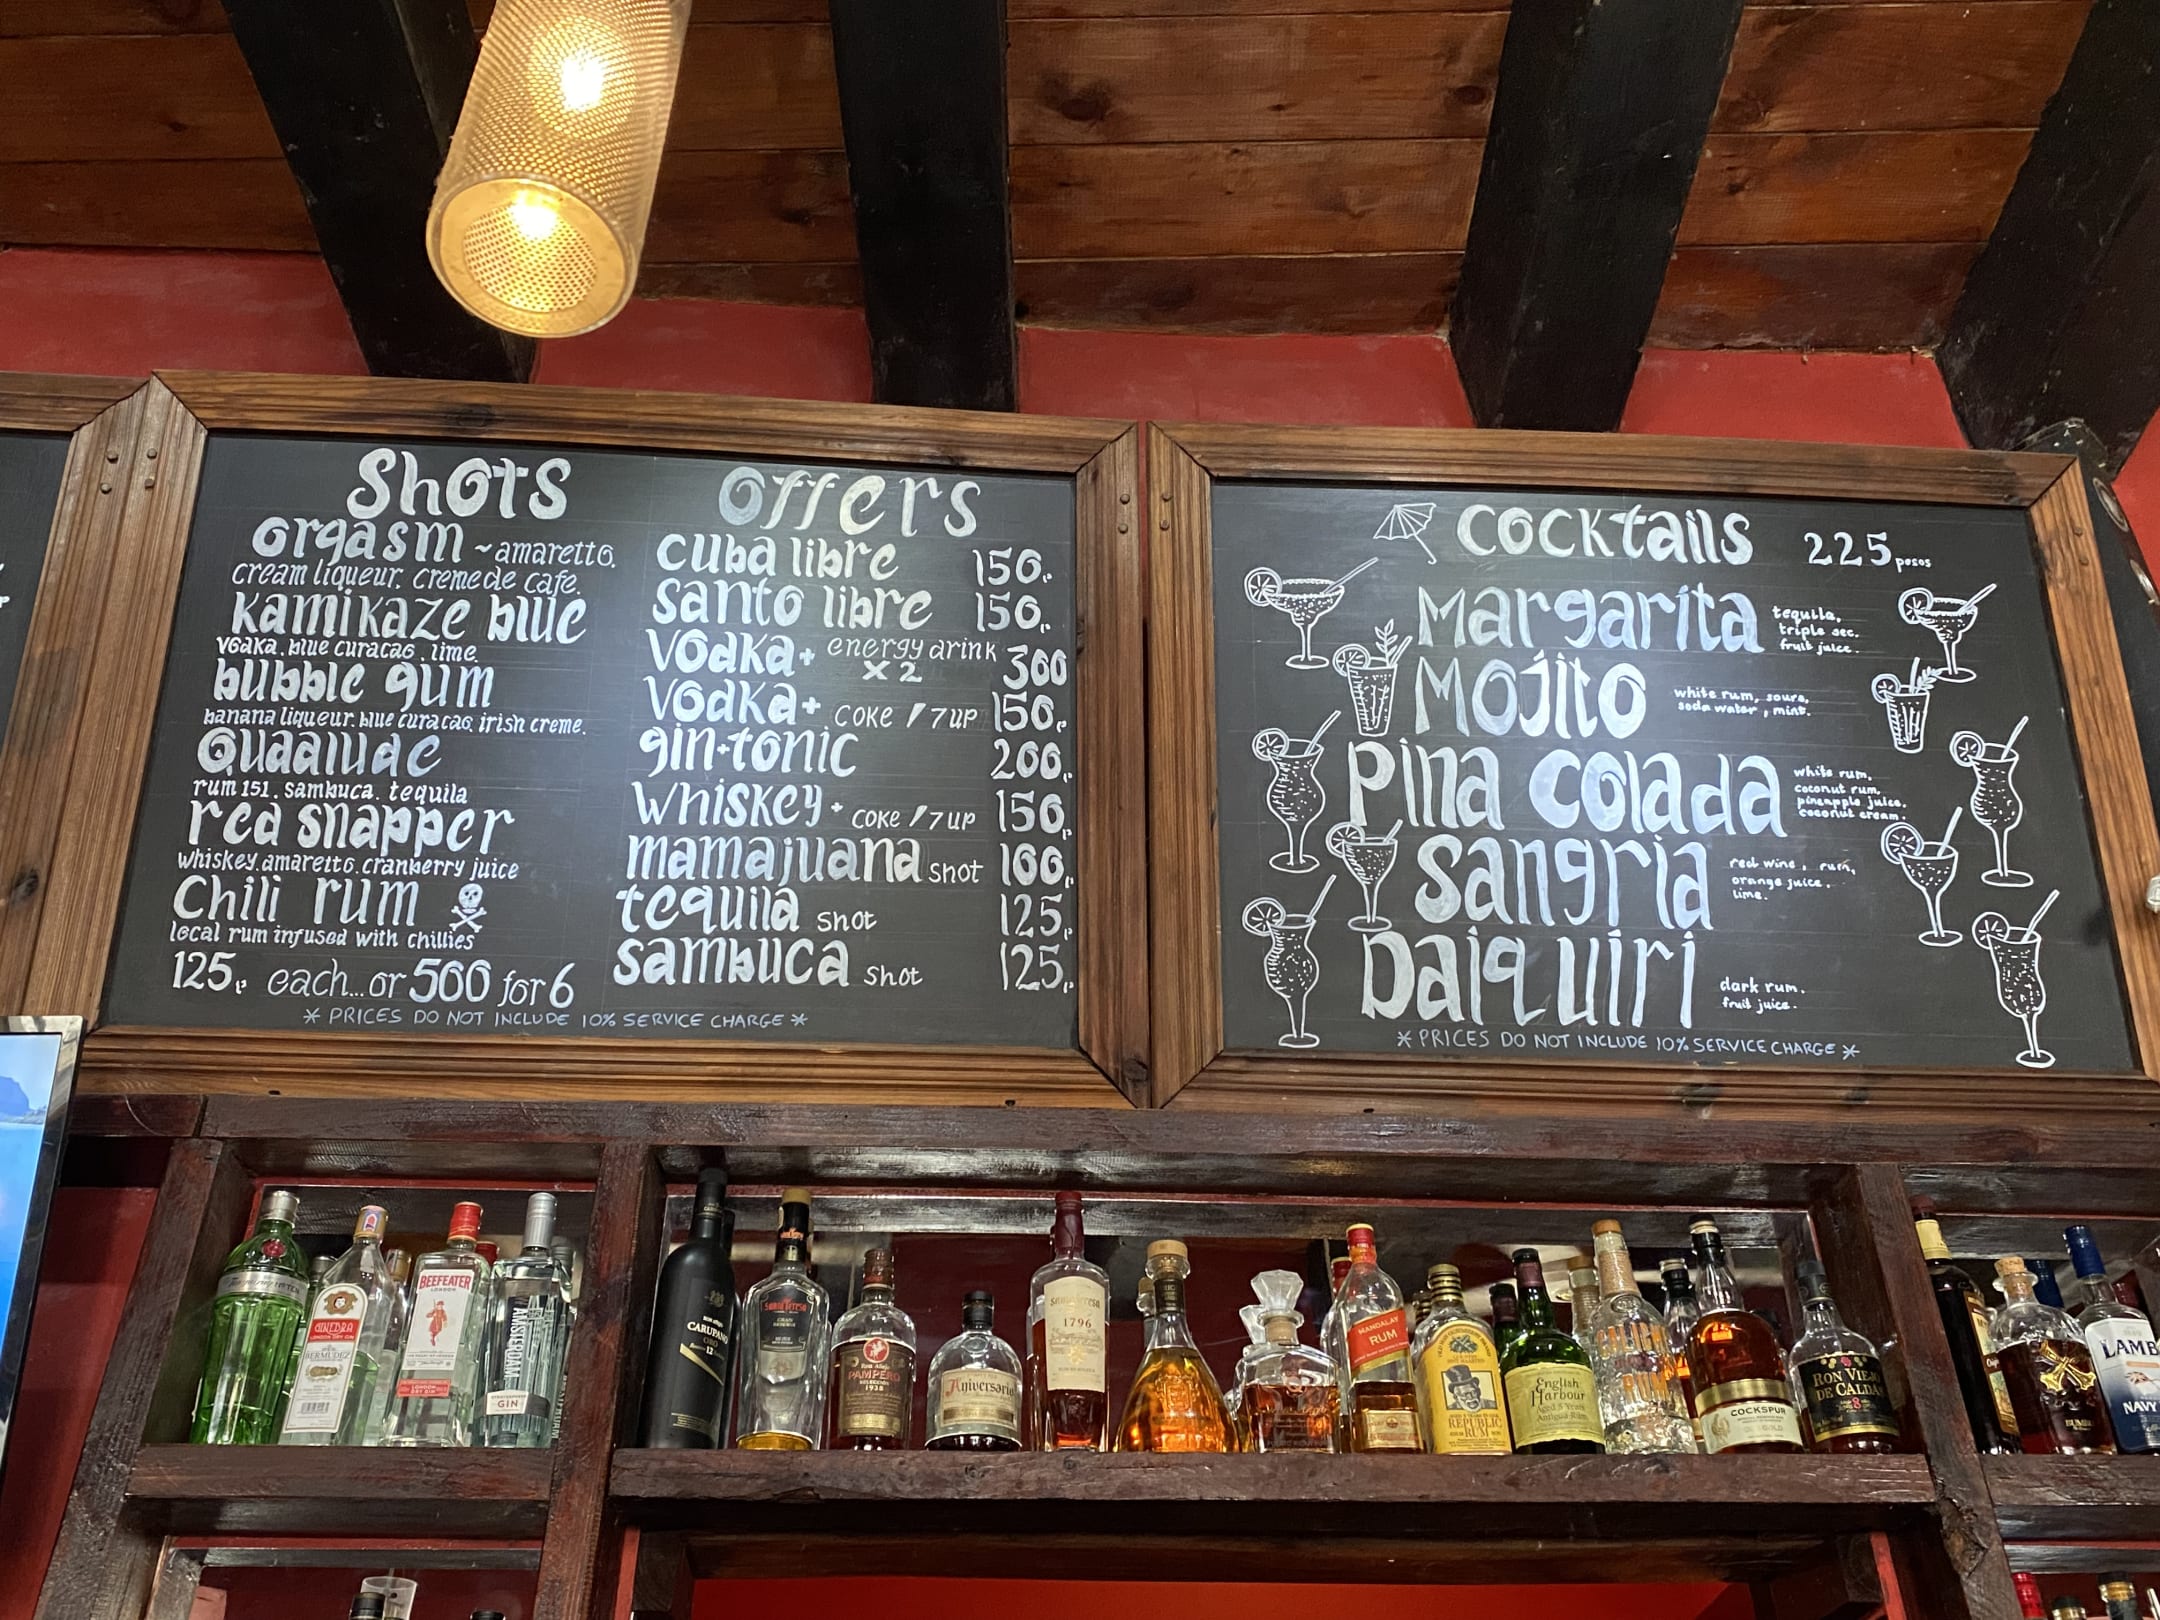 Shots
Orgasm ~ amaretto.
cream liqueur. creme de cafe.
kamikaze blue
vodka. blue curacao. lime.
bubble gum
banana liqueur. blue curacao. irish creme.
Quaalude
rum 151. sambuca. tequila
red snapper
whiskey. amaretto. cranberry juice
Chili rum
local rum infused with chillies
125, each... or 500 for 6
Offers
cuba libre 150,
santo libre 150,
vodka + energy drink x 2 300
vodka + coke / 7 up 150,
gin+tonic 200,
whiskey + coke / 7 up 150,
mamajuana shot 100,
tequila shot 125,
sambuca shot 125,
* PRICES DO NOT INCLUDE 10% SERVICE CHARGE *
cocktails 225 pesos
Margarita tequila,
triple sec.
fruit juice.
Mojito white rum, sours,
soda water, mint.
Pina colada white rum,
coconut rum,
pineapple juice.
coconut cream.
sangria red wine, rum,
orange juice.
lime.
Daiquiri dark rum.
fruit juice.
* PRICES DO NOT INCLUDE 10% SERVICE CHARGE *
GINEBRA
LONDON DRY GIN
BERMUDEZ
BEEFEATER
LONDON
LONDON
DRY GIN
AMSTERDAM
GIN
CARUPANO
12
Santa Teresa
GRAN
RESERVA
Ron Añejo
PAMPERO
SELECCIÓN
1938
Aniversario
Santa Teresa
1796
MANDALAY
RUM
REPUBLIC
RUM
English
Harbour
Aged 5 Years
Antigua Rum
COCKSPUR
RON VIEJO
DE CALDAS
8
LAMB
NAVY